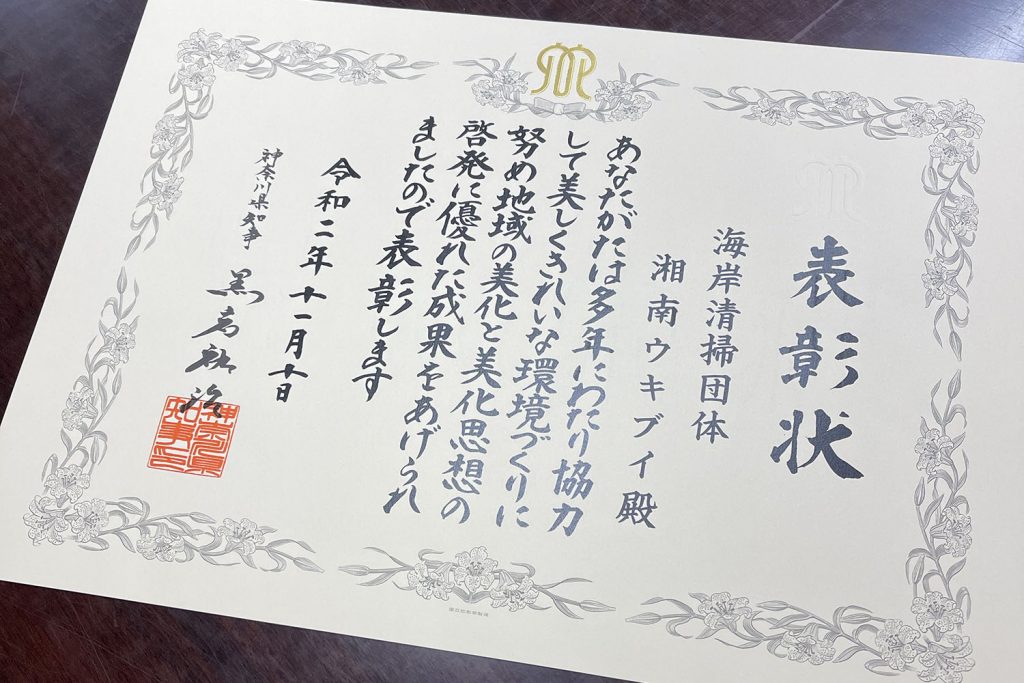 表彰状
海岸清掃団体
湘南ウキブイ殿
あなたがたは多年にわたり協力
して美しくきれいな環境づくりに
努め地域の美化と美化思想の
啓発に優れた成果をあげられ
ましたので表彰します
令和二年十一月十日
神奈川県知事 黒岩祐治
神奈川県
知事之印